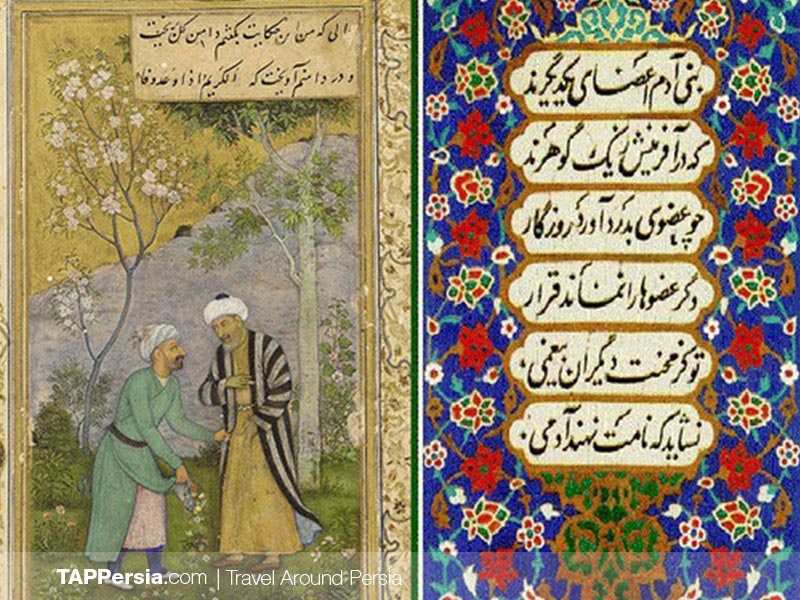 الی که من این حکایت بگفتم دامن گل بریخت
و در دامنم آویخت که الکریم اذا وعد وفا
بنی آدم اعضای یکدیگرند
که در آفرینش ز یک گوهرند
چو عضوی بدرد آورد روزگار
دگر عضوها را نماند قرار
تو کز محنت دیگران بیغمی
نشاید که نامت نهند آدمی
TAPPersia.com | Travel Around Persia